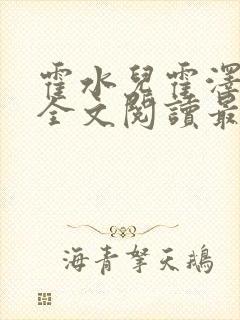 霍水兒霍澤
全文閱讀最
海青拏天鵝